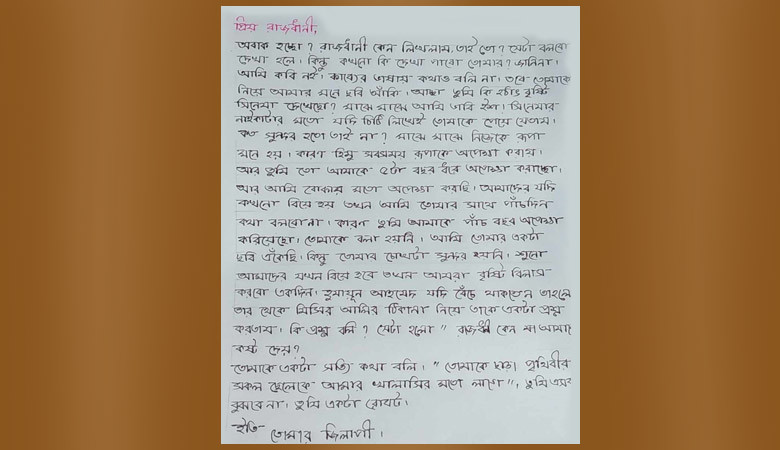 প্রিয় রাজধানী,
অবাক হচ্ছো? রাজধানী কেন লিখলাম, তাই তো? সেটা বলবো
দেখা হলে। কিন্তু কখনো কি দেখা পাবো তোমার? জানিনা।
আমি কবি নই। কাব্যের ভাষায় কথাও বলি না। তবে তোমাকে
নিয়ে আমার মনে ছবি আঁকি। আচ্ছা তুমি কি হঠাৎ বৃষ্টি
সিনেমা দেখেছো? মাঝে মাঝে আমি ভাবি ইশ। সিনেমার
নাইকাটার মতো যদি চিঠি লিখেই তোমাকে পেয়ে যেতাম।
কত সুন্দর হতো তাই না? মাঝে মাঝে নিজেকে রূপা
মনে হয়। কারণ হিমু সবসময় রূপাকে অপেক্ষা করায়।
আর তুমি তো আমাকে ৫টা বছর ধরে অপেক্ষা করাচ্ছো।
আর আমি বোকার মতো অপেক্ষা করছি। আমাদের যদি
কখনো বিয়ে হয় তখন আমি তোমার সাথে পাঁচদিন
কথা বলবো না। কারণ তুমি আমাকে পাঁচ বছর অপেক্ষা
করিয়েছো। তোমাকে বলা হয়নি। আমি তোমার একটা
ছবি এঁকেছি। কিন্তু তোমার চোখটা সুন্দর হয়নি। শুনো
আমাদের যখন বিয়ে হবে তখন আমরা বৃষ্টি বিলাস
করবো একদিন। হুমায়ূন আহমেদ যদি বেঁচে থাকতেন তাহলে
তার থেকে মিসির আলির ঠিকানা নিয়ে তাকে একটা প্রশ্ন
করতাম। কি প্রশ্ন বলি? সেটা হলো "রাজধানী কেন আমায়
কষ্ট দেয়?
তোমাকে একটা সত্যি কথা বলি। "তোমাকে ছাড়া পৃথিবীর
সকল ছেলেকে আমার খালাসির মতো লাগে"। তুমি এসব
বুঝবে না। তুমি একটা রোবট।
ইতি
তোমার জিলাপী।